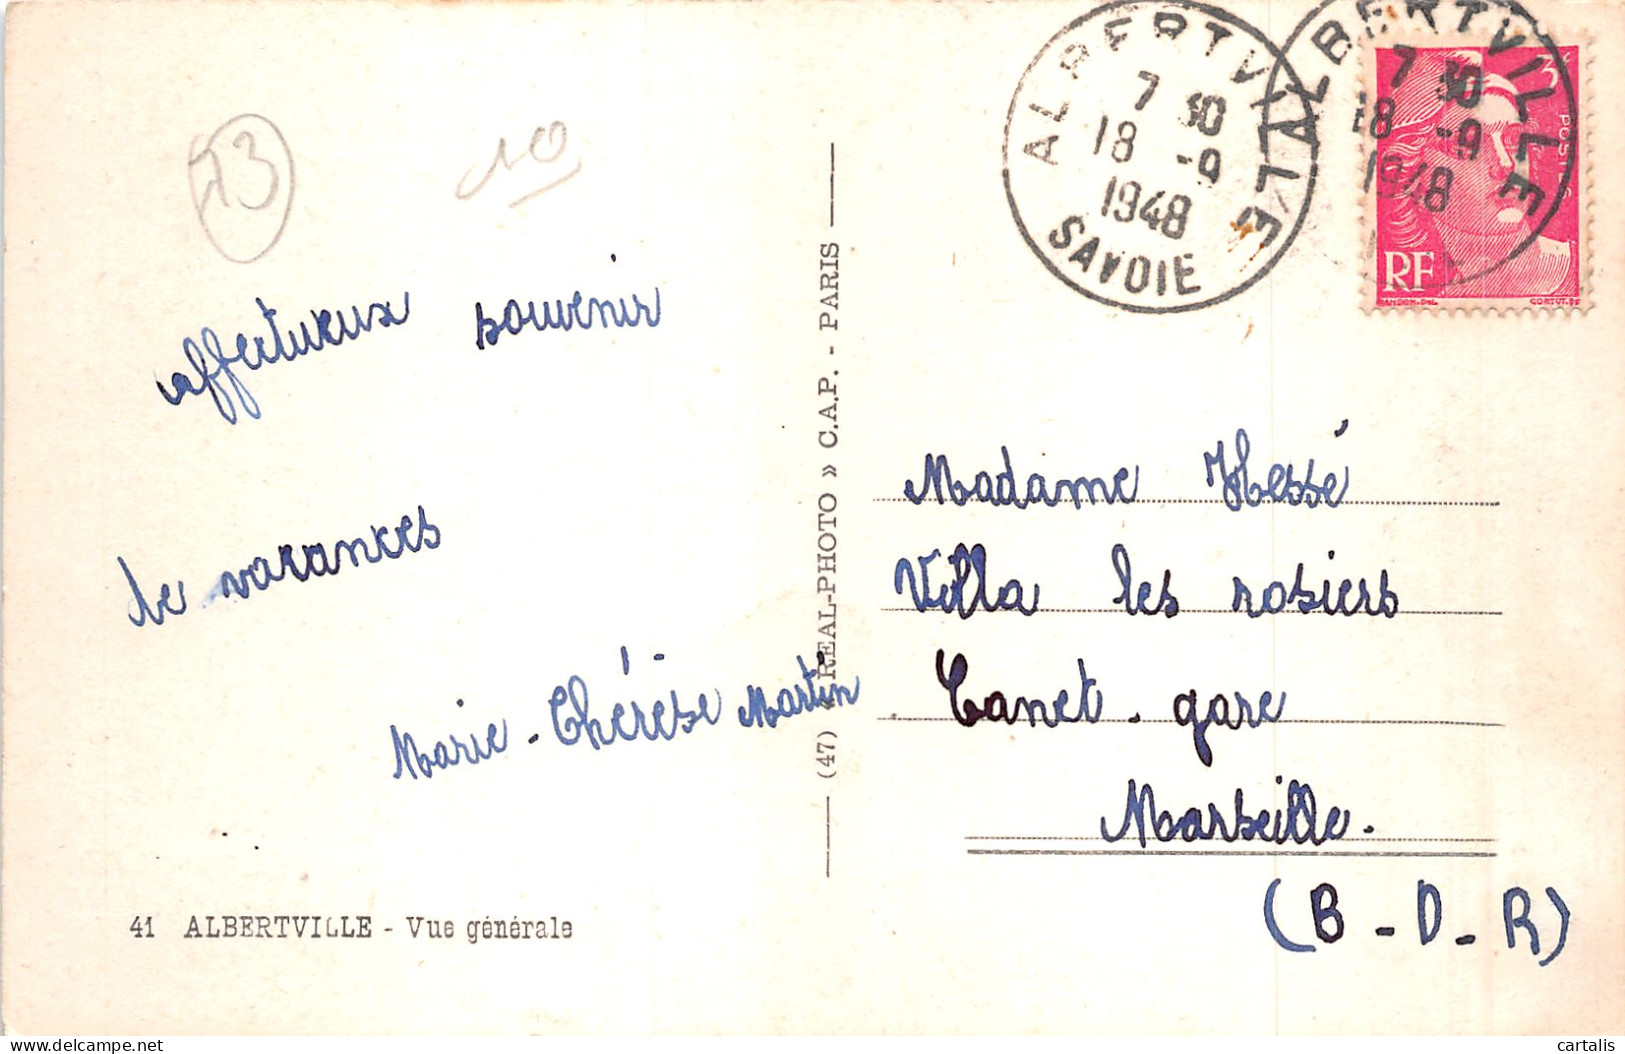 73
10
affectueux souvenir
de vacances
Marie-Thérèse Martin
41 ALBERTVILLE - Vue générale
(47) « REAL-PHOTO » C.A.P. - PARIS
ALBERTVILLE
7 30
18 -9
1948
SAVOIE
ALBERTVILLE
7 30
18 -9
1948
3F
POSTES
RF
GANDON-Del.
CORTOT.SC
Madame Hessé
Villa les rosiers
Canet-gare
Marseille.
(B-D-R)
cartalis